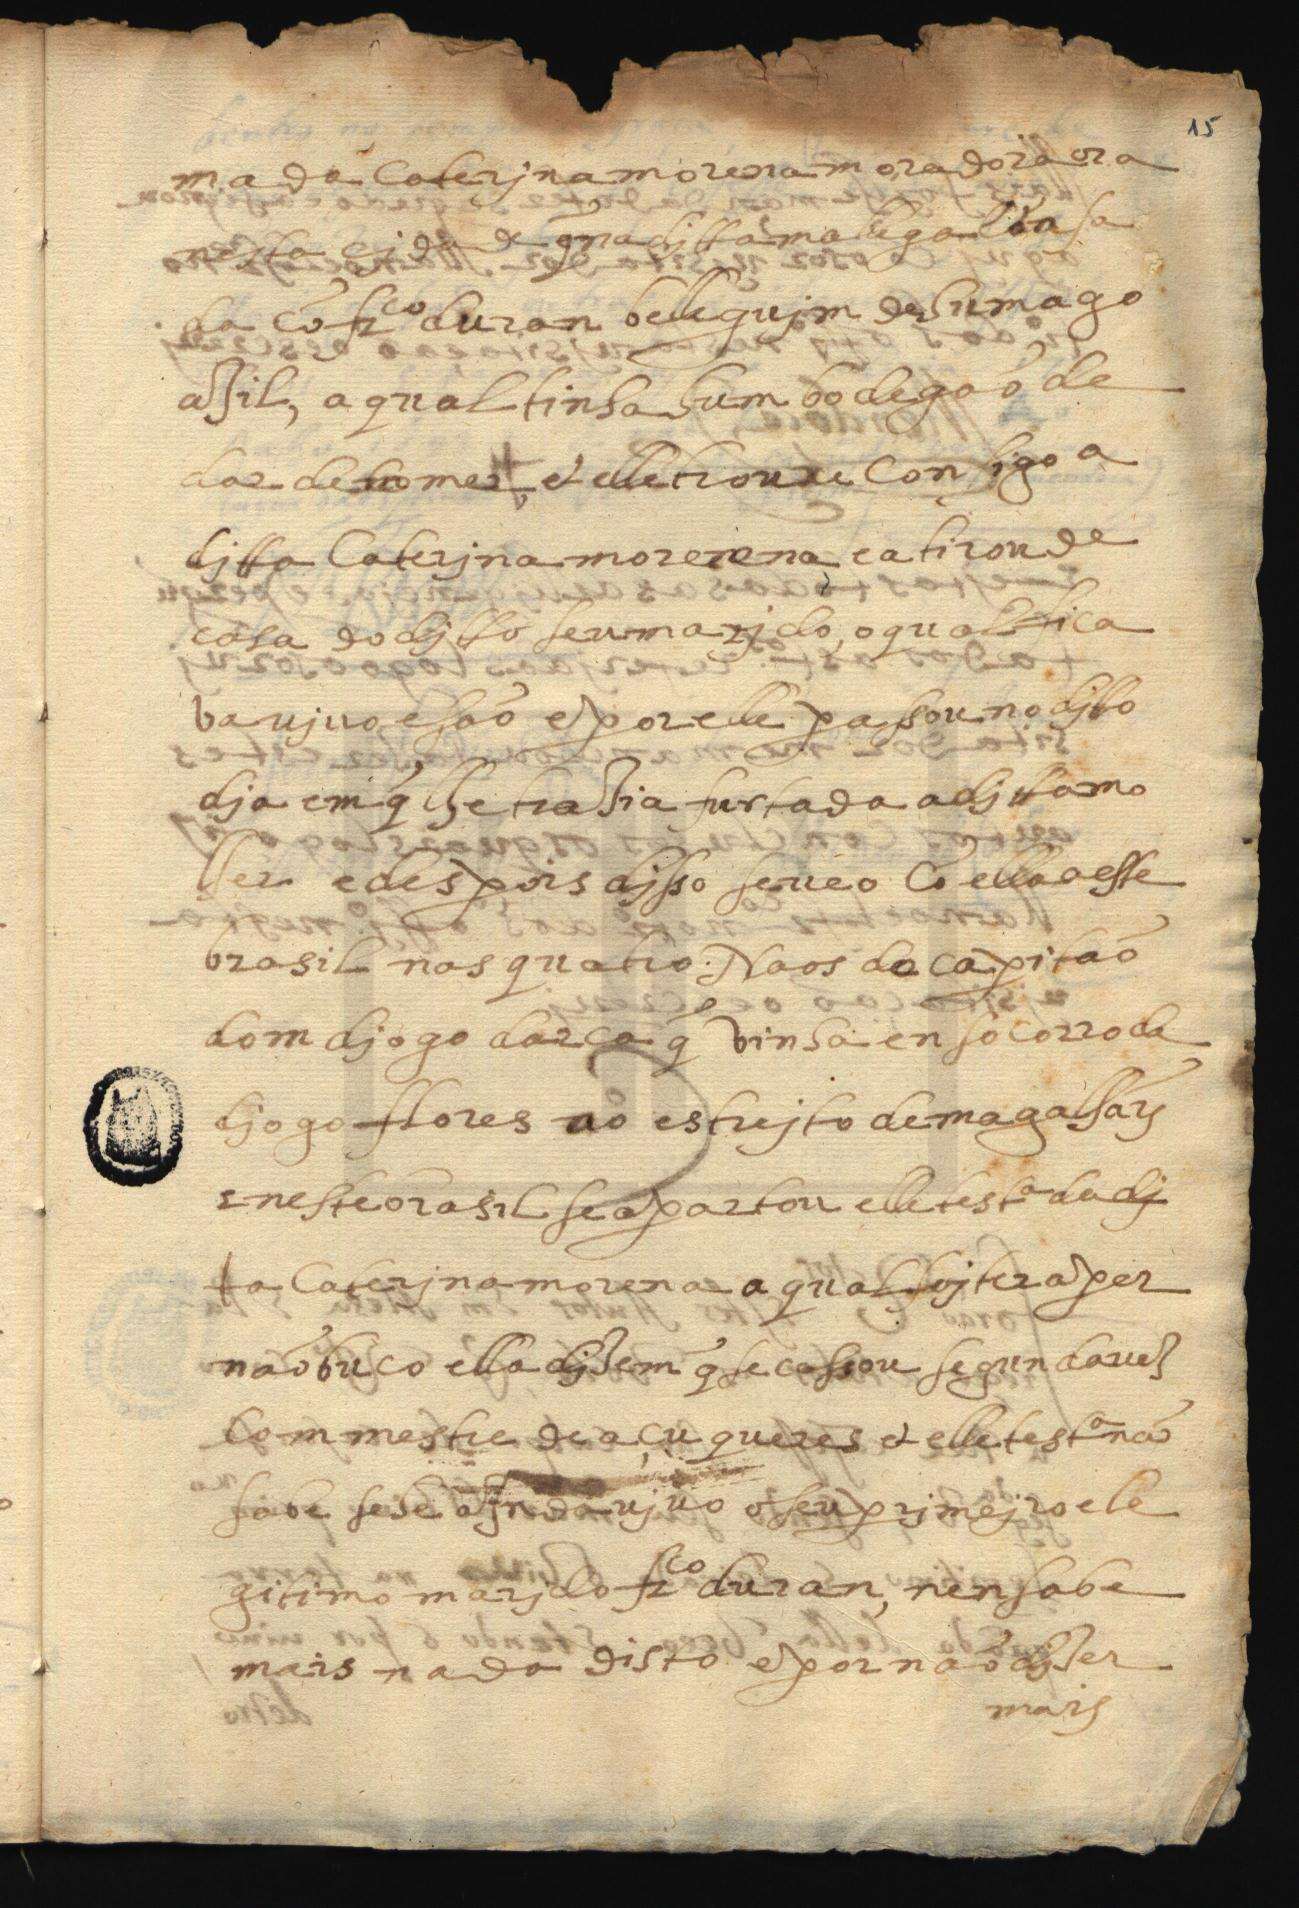 15
mada Caterjna morena moradora ora
nesta cidade q̃ na ditta malega Casa
da Cõ frco duran beleguim de hum ago
asil, a qual tinha hum bodegaõ de
dar de comer, et elle trouxe Consigo a
djtta Caterjna morena, e a tirou de
casa do djtto seu marjdo, o qual fica
va ujuo, e saõ e por elle passou no djto
dja em q̃ lhe trazia furtada a djtta mo
lher e despois djsso se ueo Cõ ella a este
brasil nas quatro Naos do capitaõ
dom djogo darca q̃ vinha en socorro de
djogo flores aõ estrejto de magalhaẽs
e neste brasil se apartou elle testa da dj
ta Caterjna morena a qual foj ter a per
naõbuco e lla djzem q̃ se casou segunda uez
Com mestre de açuqueres et elle testa naõ
sabe se he ajnda ujuo o seu prjmejro le
gitimo marjdo frco duran, nen sabe
mais nada disto e por naõ djzer
mais